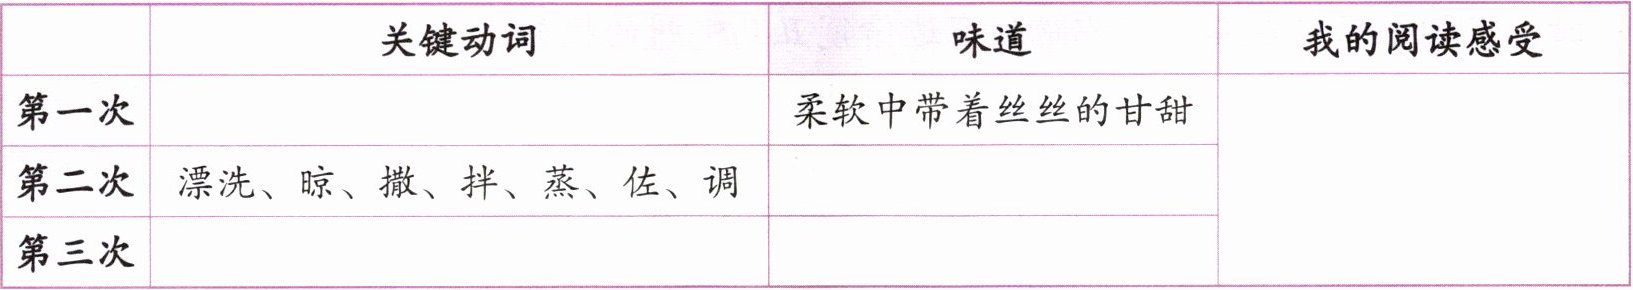 关键动词 味道 我的阅读感受
第一次 柔软中带着丝丝的甘甜
第二次 漂洗、晾、撒、拌、蒸、佐、调
第三次